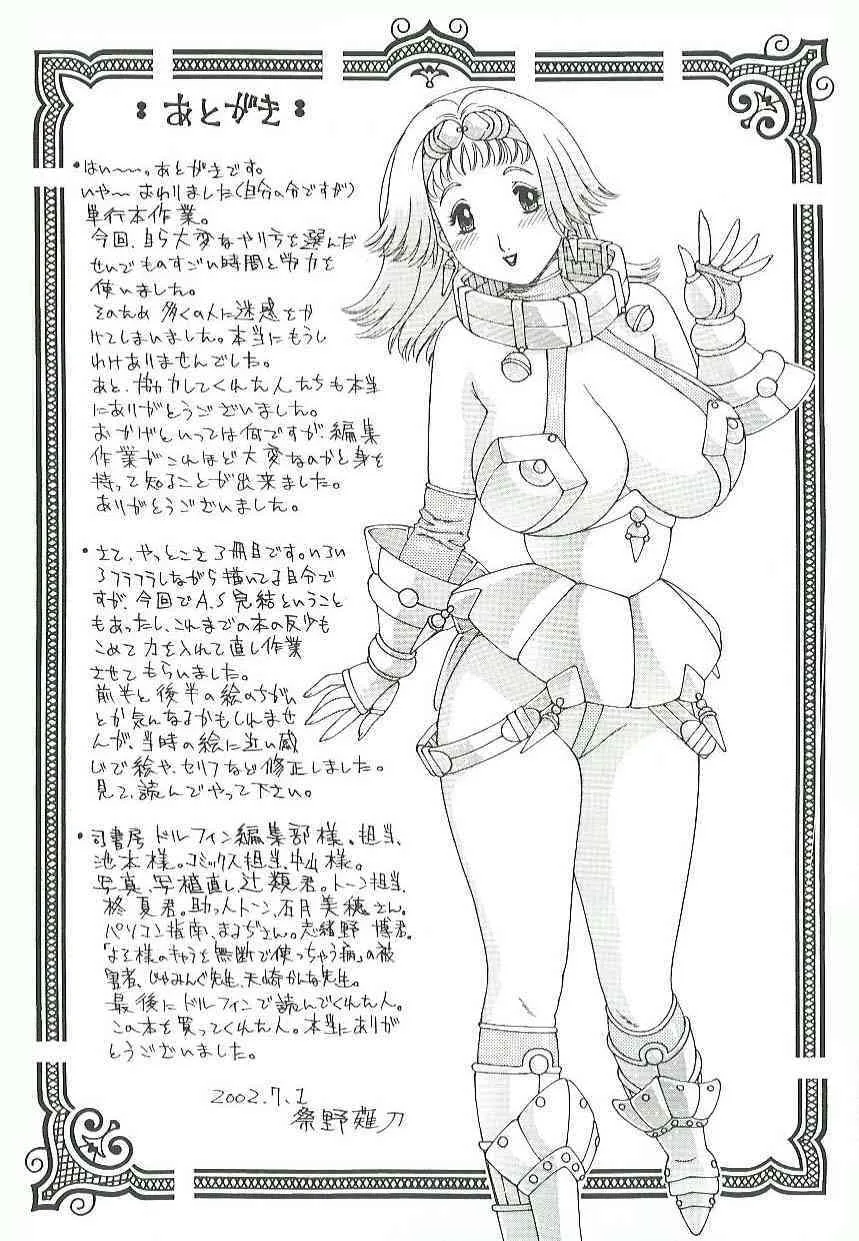 ：あとがき：
・はい〜〜。あとがきです。
いや〜 おわりました(自分の分ですが)
単行本作業。
今回、自ら大変なやり方を選んだ
せいでものすごい時間と労力を
使いました。
そのため 多くの人に迷惑をか
けてしまいました。本当にもうし
わけありませんでした。
あと、協力してくれた人たちも本当
にありがとうございました。
おかげといっては何ですが、編集
作業がこれほど大変なのかと身を
持って知ることが出来ました。
ありがとうございました。
・さて、やっとこさ3冊目です。いろい
ろフラフラしながら描いてる自分で
すが、今回でA.S完結ということ
もあったし、これまでの本の反省も
こめて力を入れて直し作業
させてもらいました。
前半と後半の絵のちがい
とか気んなるかもしれませ
んが、当時の絵に近い感
じで絵や、セリフなど修正しました。
見て、読んでやって下さい。
・司書房 ドルフィン編集部様。担当、
池本様。コミックス担当、中山様。
写真、写植直し、辻類君。トーン担当、
柊夏君。助っ人トーン、石月美穂さん。
パソコン指南、まるぢさん。志緒野 博君。
「よそ様のキャラを無断で使っちゃう病」の被
害者、じゃみんぐ先生、天崎かんな先生。
最後にドルフィンで読んでくれた人。
この本を買ってくれた人。本当にありが
とうございました。
2002.7.1
祭野薙刀